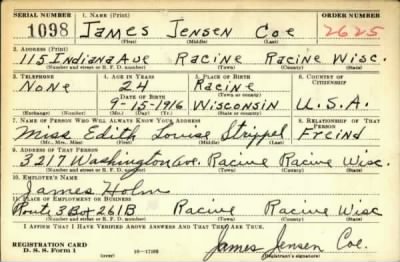 SERIAL NUMBER 1. NAME (Print) ORDER NUMBER
1098 JAMES JENSEN COE 2625
(First) (Middle) (Last)
2. ADDRESS (Print)
115 Indiana Ave Racine Racine Wisc.
(Number and street or R. F. D. number) (Town) (County) (State)
3. TELEPHONE 4. AGE IN YEARS 5. PLACE OF BIRTH 6. COUNTRY OF CITIZENSHIP
NONE 24 Racine
DATE OF BIRTH (Town or county)
9-15-1916 Wisconsin U.S.A.
(Mo.) (Day) (Yr.) (State or country)
7. NAME OF PERSON WHO WILL ALWAYS KNOW YOUR ADDRESS 8. RELATIONSHIP OF THAT PERSON
Miss Edith Louise Strippel Freind
(Mr., Mrs., Miss) (First) (Middle) (Last)
9. ADDRESS OF THAT PERSON
3217 Washington Ave. Racine Racine Wisc.
(Number and street or R. F. D. number) (Town) (County) (State)
10. EMPLOYER'S NAME
James Holm
11. PLACE OF EMPLOYMENT OR BUSINESS
Rout. 3 Box 261B Racine Racine Wisc
(Number and street or R. F. D. number) (Town) (County) (State)
I AFFIRM THAT I HAVE VERIFIED ABOVE ANSWERS AND THAT THEY ARE TRUE.
REGISTRATION CARD
D. S. S. Form 1 (over) James Jensen Coe.
(Registrant's signature)